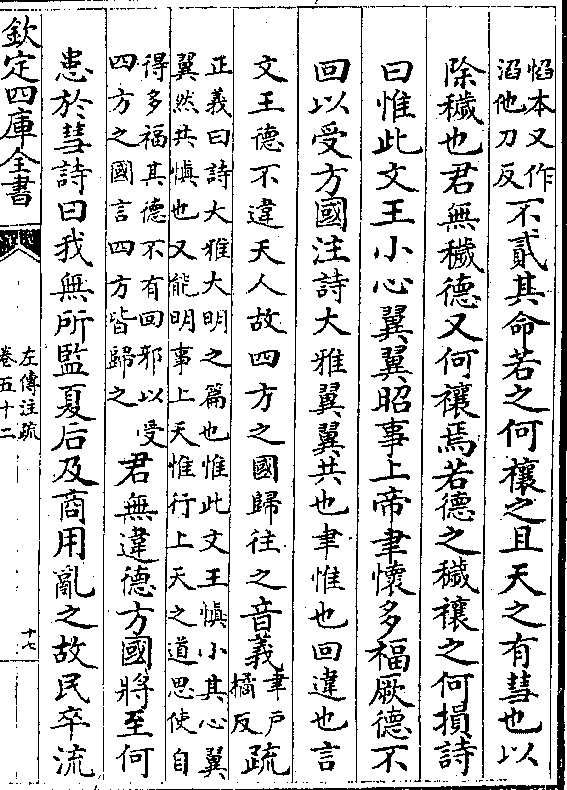 慆本又作
滔他刀反
不貳其命若之何禳之且天之有彗也以
除穢也君無穢德又何禳焉若德之穢禳之何損詩
曰惟此文王小心翼翼昭事上帝聿懷多福厥德不
回以受方國注詩大雅翼翼共也聿惟也回違也言
文王德不違天人故四方之國歸往之音義
聿戶
橘反
疏
正義曰詩大雅大明之篇也惟此文王慎小其心翼
翼然共慎也又能明事上天惟行上天之道思使自
得多福其德不有回邪以受
四方之國言四方皆歸之
君無違德方國將至何
患於彗詩曰我無所監夏后及商用亂之故民卒流
欽定四庫全書
左傳注疏
卷五十二
十七